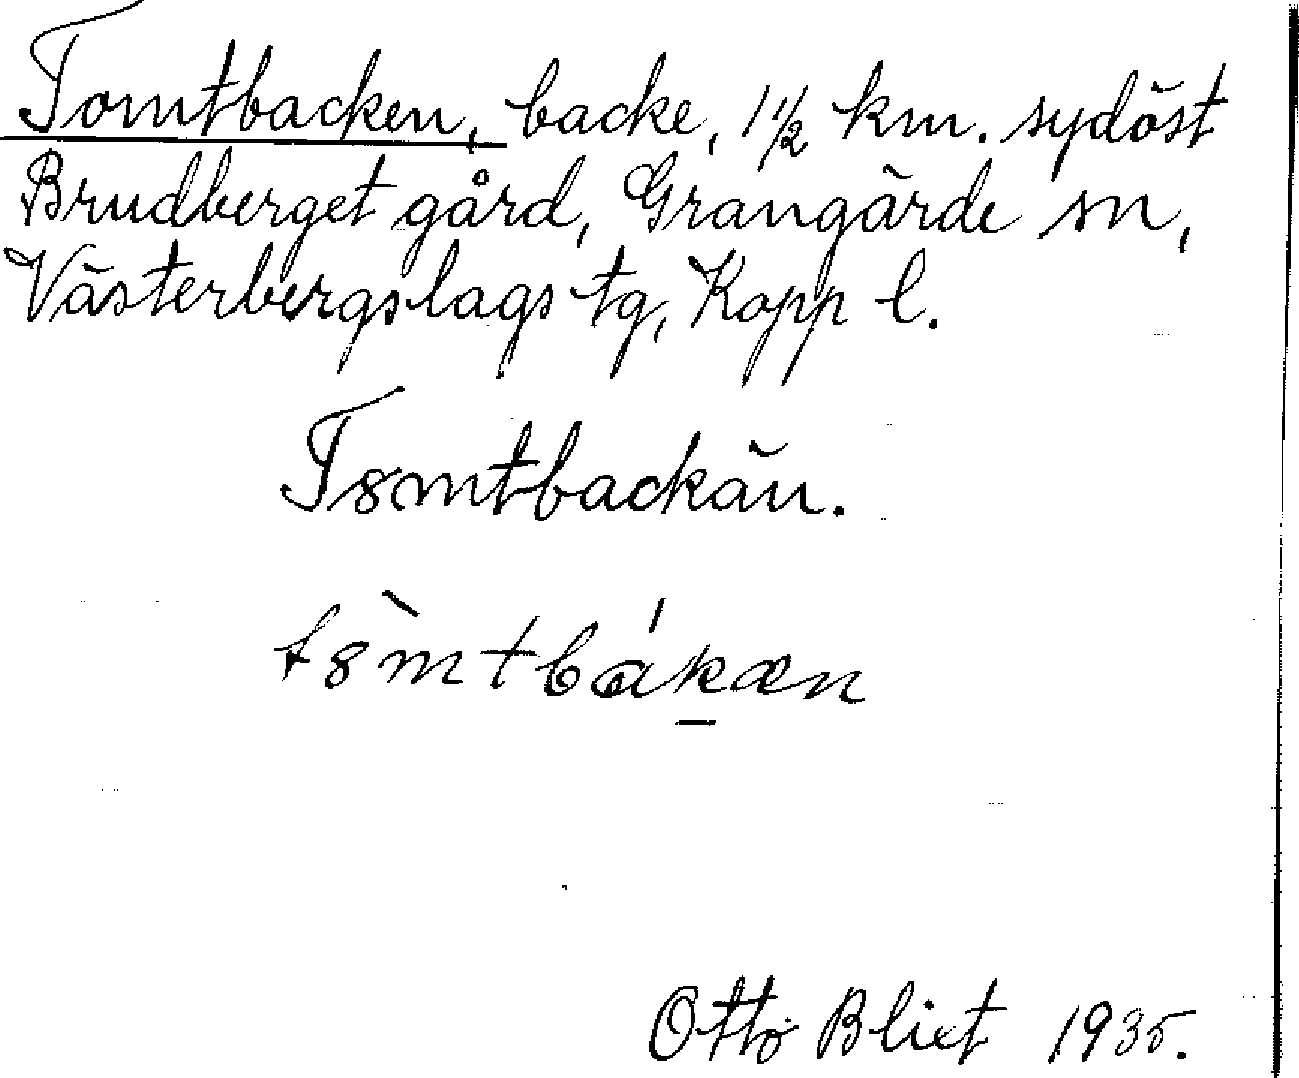 Tomtbacken, backe, 1 1/2 km. sydöst
Brudberget gård, Grangärde sn,
Västerbergslags tg, Kopp l.
T8mtbackän.
t8̀mtbákæn
Otto Blixt 1935.